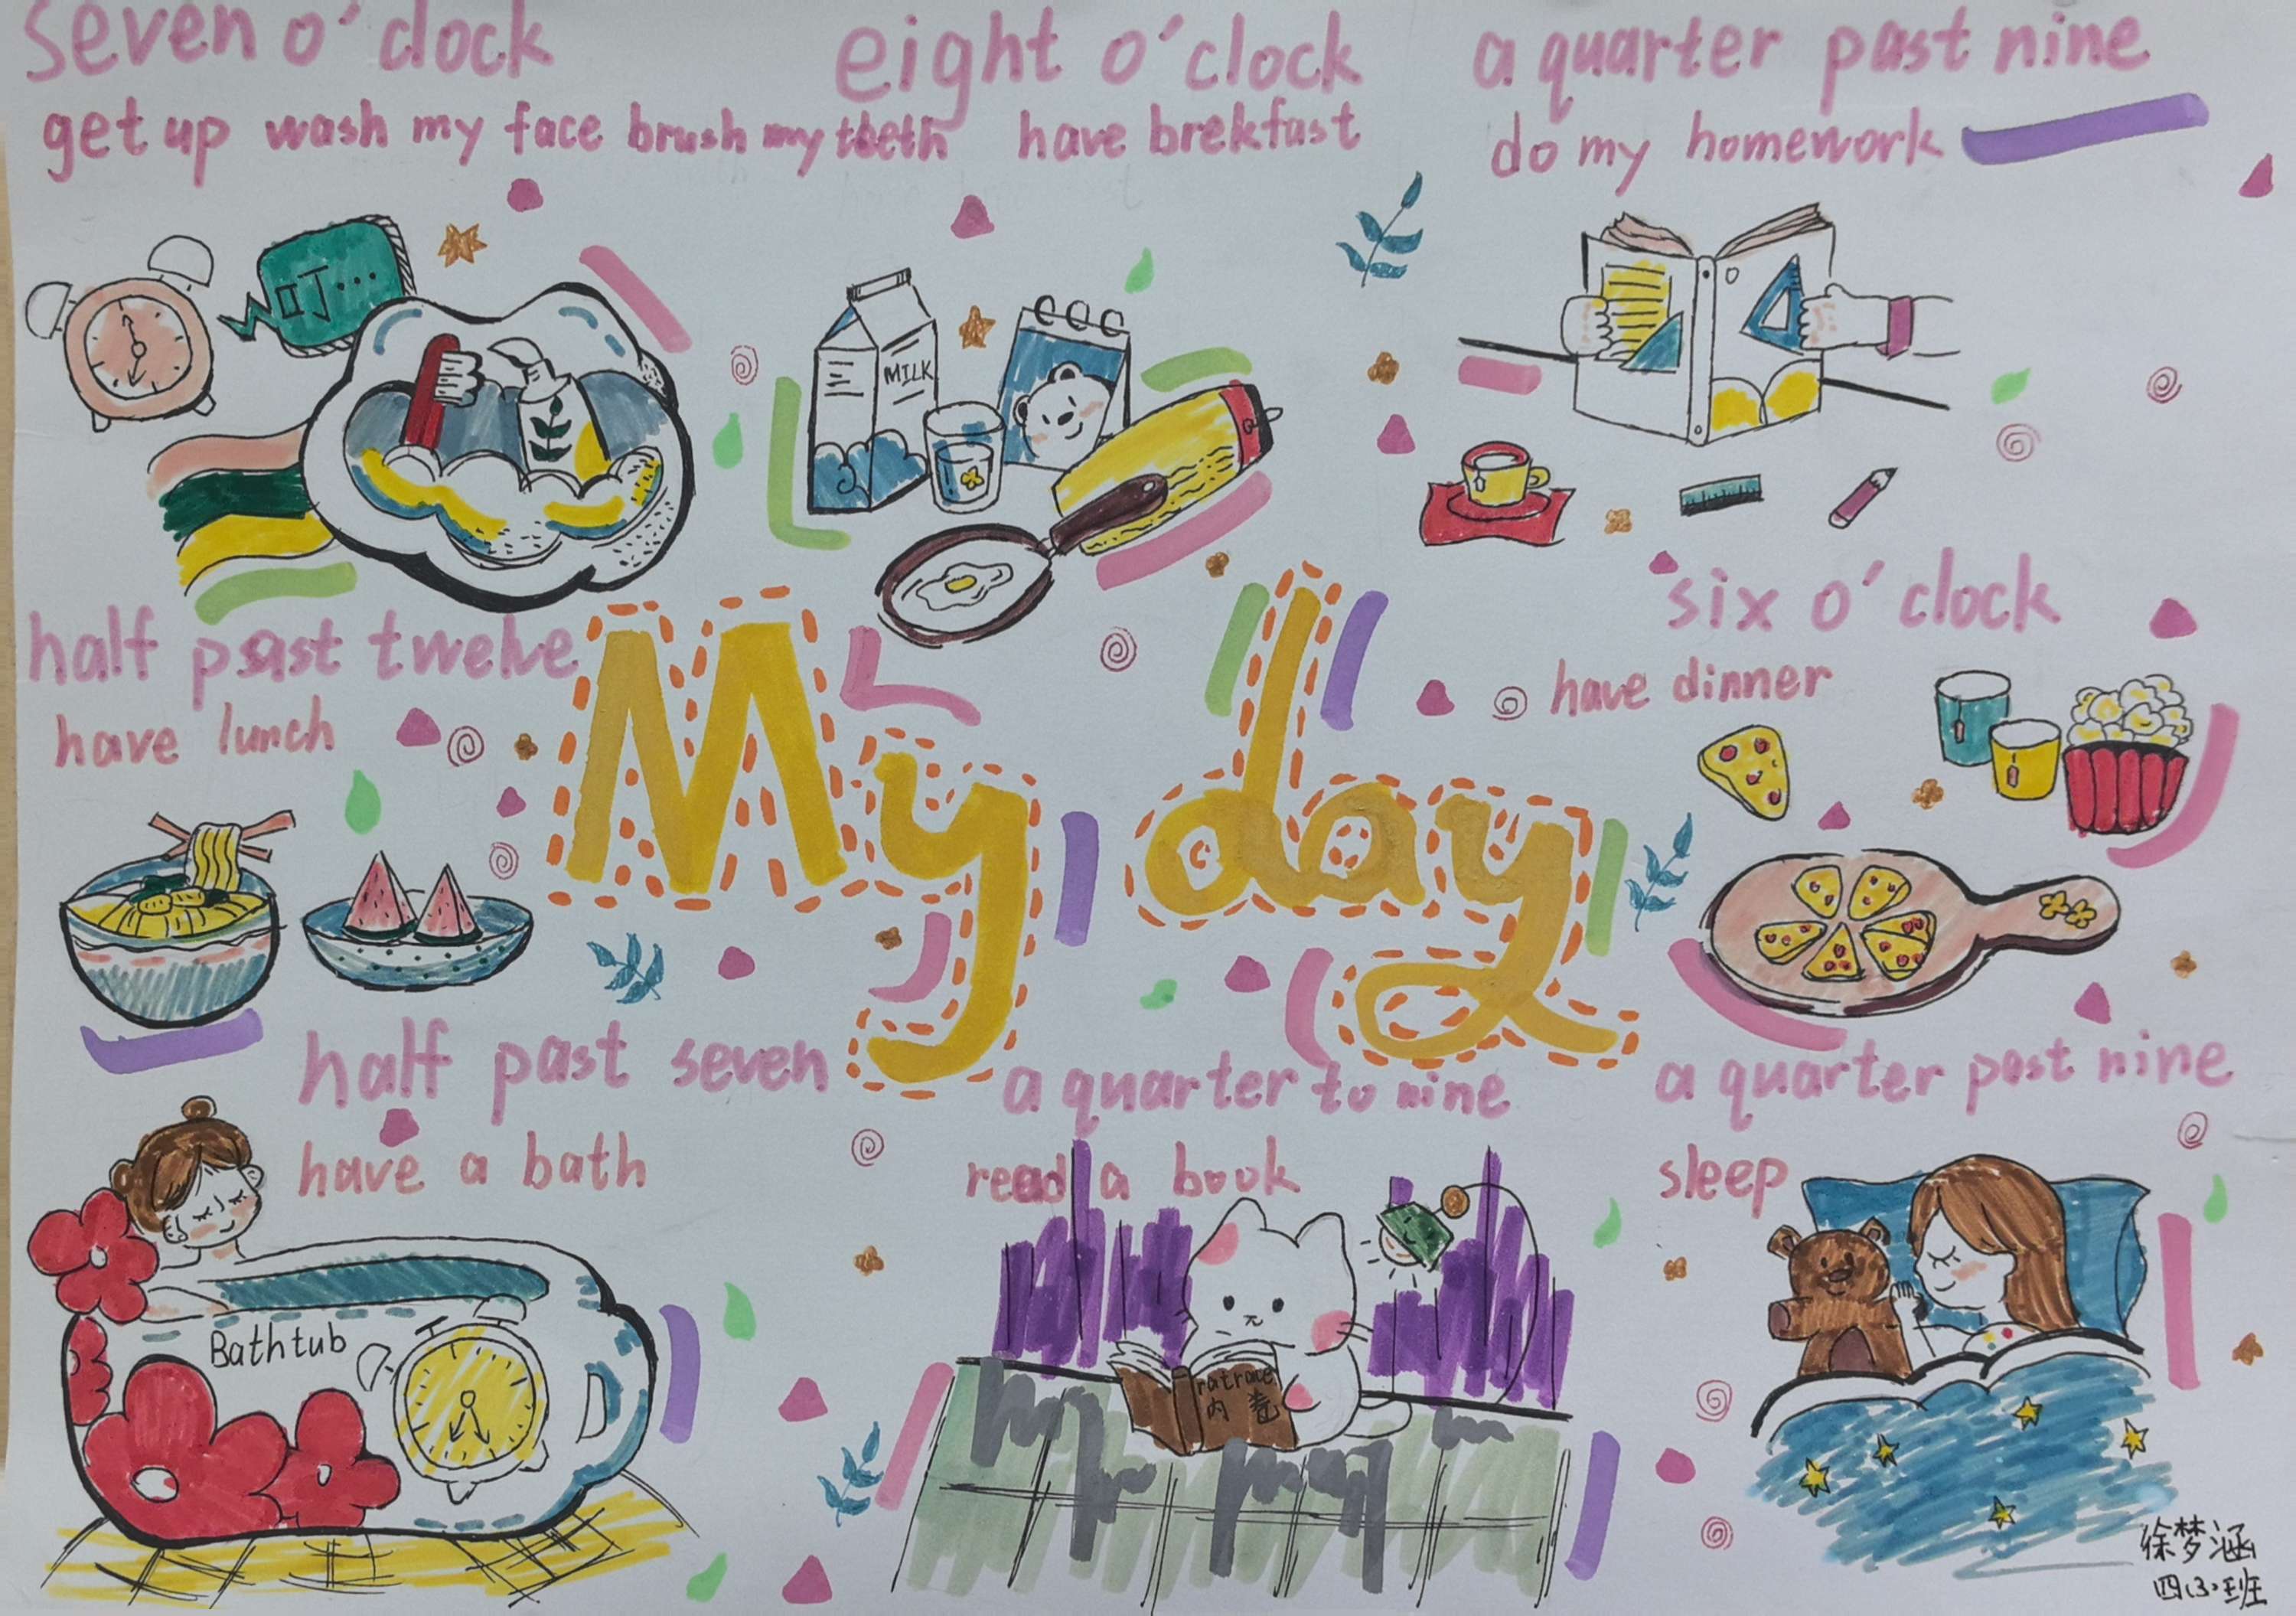 seven o'clock
get up wash my face brush my teeth
叮...
eight o'clock
have brekfast
MILK
a quarter past nine
do my homework
half past twelve
have lunch
My day
six o'clock
have dinner
half past seven
have a bath
Bathtub
a quarter to nine
read a book
ratrace
内卷
a quarter past nine
sleep
徐梦涵
四(3)班